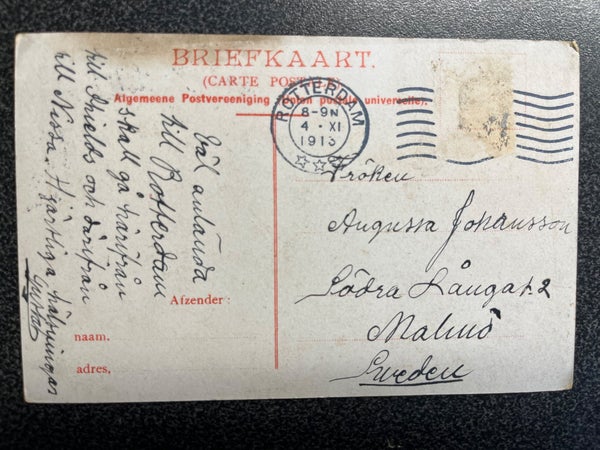 BRIEFKAART.
(CARTE POSTALE)
Algemeene Postvereeniging (Union postale universelle).
ROTTERDAM
8-9N
4 · XI
1913
Väl anlända
till Rotterdam
skall gå härifrån
till Shields och därifrån
till Nissa. Hjärtliga hälsningar
Gusta
Fröken
Augusta Johansson
Södra Långat. 2
Malmö
Sweden
Afzender:
naam.
adres,